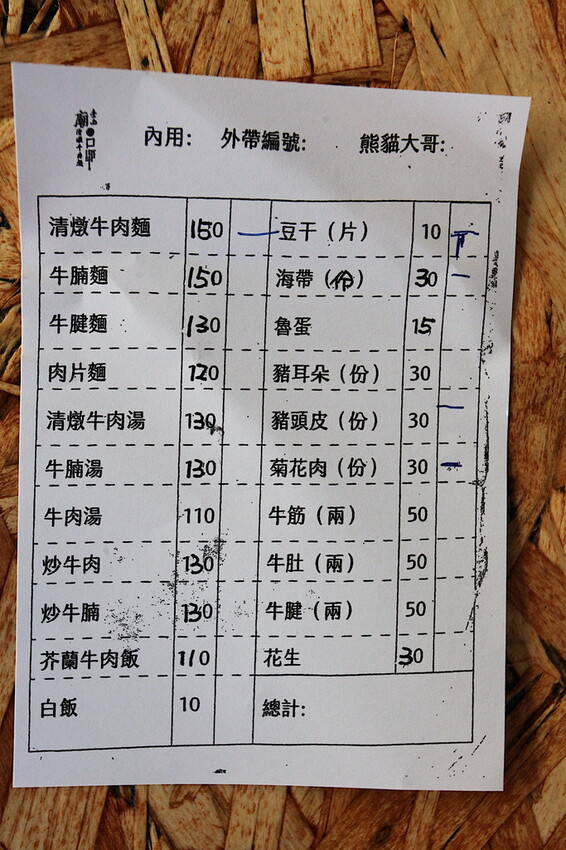 內用: 外帶編號: 熊貓大哥:
清燉牛肉麵 150 一 豆干（片） 10 丅
牛腩麵 150 海帶（份） 30 一
牛腱麵 130 魯蛋 15
肉片麵 120 豬耳朵（份） 30
清燉牛肉湯 130 豬頭皮（份） 30 一
牛腩湯 130 菊花肉（份） 30 一
牛肉湯 110 牛筋（兩） 50
炒牛肉 130 牛肚（兩） 50
炒牛腩 130 牛腱（兩） 50
芥蘭牛肉飯 110 花生 30
白飯 10 總計: